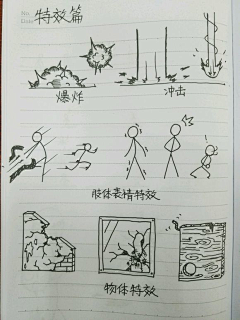 特效篇
爆炸 冲击
肢体表情特效
物体特效